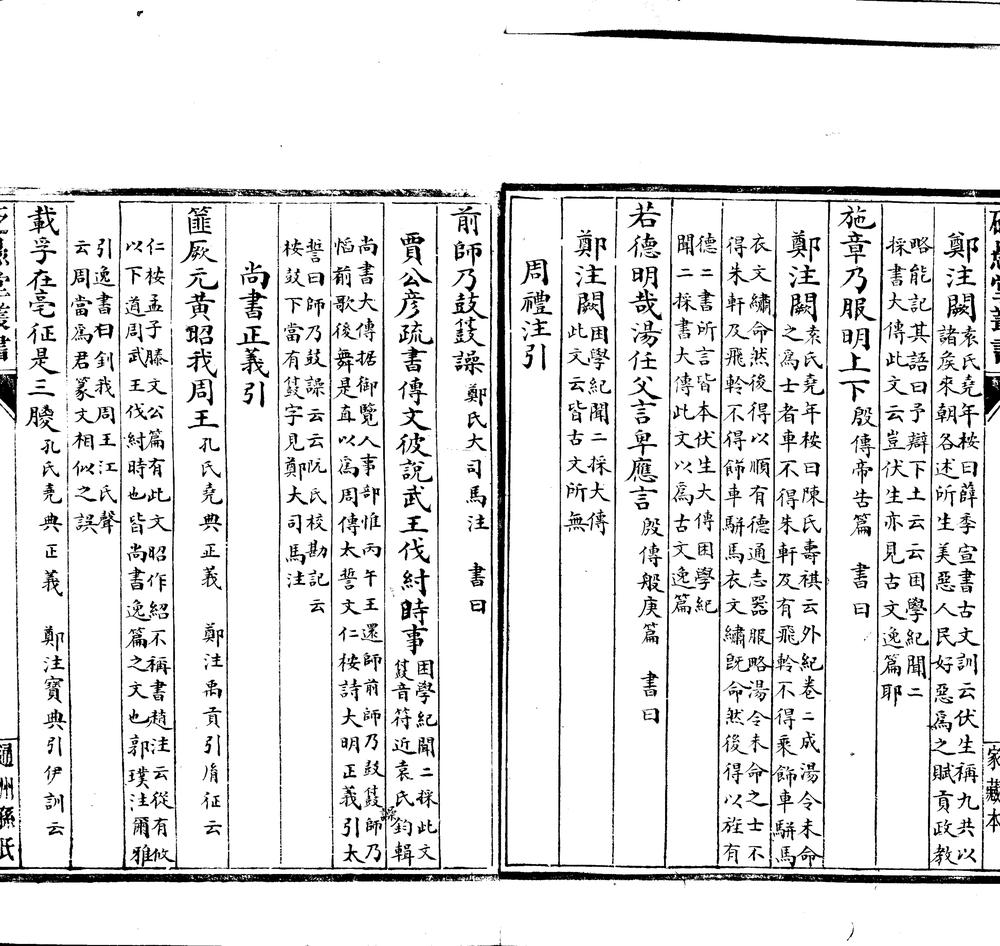 鄭注闕袁氏堯年桉曰薛季宣書古文訓云伏生稱九共以
諸矦來朝各述所生美惡人民好惡爲之賦貢政教
略能記其語曰予辯下土云云困學紀聞二
採書大傳此文云豈伏生亦見古文逸篇耶
施章乃服明上下 殷傳帝告篇 書曰
鄭注闕袁氏堯年桉曰陳氏壽祺云外紀卷二成湯令未命
之爲士者車不得朱軒及有飛軨不得乘飾車駢馬
衣文繡命然後得以順有德通志器服略湯令未命之士不
得朱軒及飛軨不得飾車駢馬衣文繡旣命然後得以旌有
德二書所言皆本伏生大傳困學紀
聞二採書大傳此文以爲古文逸篇
若德明哉湯任父言卑應言 殷傳般庚篇 書曰
鄭注闕困學紀聞二採大傳
此文云皆古文所無
周禮注引
家藏本
前師乃鼓鼗譟 鄭氏大司馬注 書曰
賈公彥疏書傳文彼說武王伐紂時事困學紀聞二採此文
鼗音符近袁氏鈞輯
尚書大傳据御覽人事部惟丙午王還師前師乃鼓鼗師乃
慆前歌後舞是直以爲周傳太誓文仁桉詩大明正義引太
誓曰師乃鼓譟云云阮氏校勘記云
桉鼓下當有鼗字見鄭大司馬注
尚書正義引
篚厥元黃昭我周王 孔氏堯典正義 鄭注禹貢引胤征云
仁桉孟子滕文公篇有此文昭作紹不稱書趙注云從有攸
以下道周武王伐紂時也皆尚書逸篇之文也郭璞注爾雅
引逸書曰釗我周王江氏聲
云周當爲君篆文相似之誤
載孚在亳征是三朡 孔氏堯典正義 鄭注寶典引伊訓云
通州孫氏